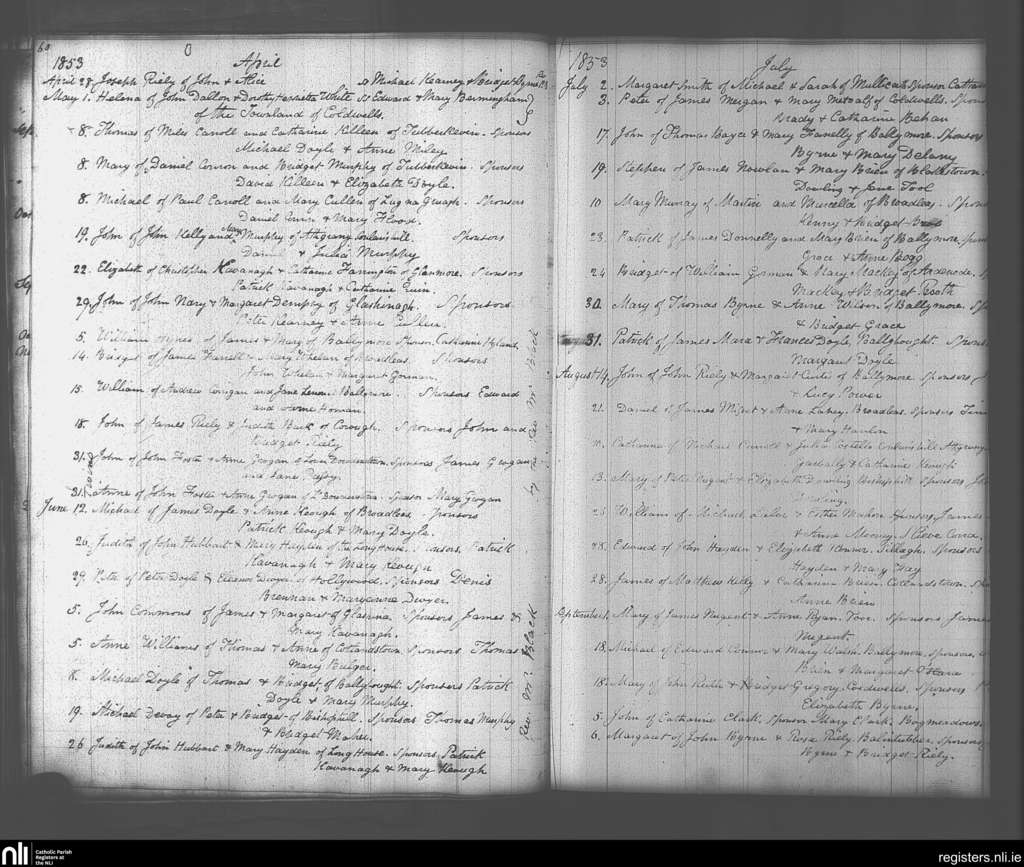 60
1853 April
April 28. Joseph Riely of John & Alice ss Michael Kearney & Bridget Byrne
May 1. Helena of John Dallon & Dorothy Henrietta White ss Edward & Mary Bermingham
of the Townland of Coldwells.
8. Thomas of Miles Carroll and Catharine Killeen of Tubberkevin. Sponsors
Michael Doyle & Anne Miley.
8. Mary of Daniel Connon and Bridget Murphy of Tubberkevin. Sponsors
David Killeen & Elizabeth Doyle.
8. Michael of Paul Carroll and Mary Cullen of Lugnagruagh. Sponsors
Daniel Quin & Mary Flood.
19. John of John Kelly and Mary Murphy of Athgrany. Sponsors
Daniel & Julia Murphy
22. Elizabeth of Christopher Kavanagh & Catharine Farrington of Glenmore. Sponsors
Patrick Kavanagh & Catharine Quin.
29. John of John Nary & Margaret Dempsy of Glashinagh. Sponsors
Peter Kearney & Anne Cullen.
5. William of James & Mary of Ballymore Sponsor. Catharine Hyland.
14. Bridget of James Farrell & Mary Whelan of Broadleas. Sponsors
John Whelan & Margaret Gorman.
15. William of Andrew Corrigan and Jane Lennon Ballymore. Sponsors Edward
and Anne Homan.
18. John of James Riely & Judith Burk of Corough. Sponsors John and
Bridget Riely
31. John of John Foster & Anne Grogan of Donowstown. Sponsors James Grogan
and Jane
31. Anne of John Foster & Anne Grogan of Donowstown. Sponsor Mary Grogan
June 12. Michael of James Doyle & Anne Keough of Broadleas. Sponsors
Patrick Keough & Mary Doyle.
26. Judith of John Hubbart & Mary Hayden of the Longhouse. Sponsors. Patrick
Kavanagh & Mary Keough
29. Peter of Peter Doyle & Eleanor Dwyer of Hollywood. Sponsors Denis
Brennan & Maryanne Dwyer.
5. John Commons of James & Margaret of Glashina Sponsors James &
Mary Kavanagh.
5. Anne Williams of Thomas & Anne of Cotlandstown. Sponsors Thomas &
Mary Bulger.
8. Michael Doyle of Thomas & Bridget, of Ballybought. Sponsors Patrick
Doyle & Mary Murphy.
19. Michael Devoy of Peter & Bridget of Bishophill. Sponsors Thomas Murphy
& Bridget Maher.
26. Judith of John Hubbart & Mary Hayden of Long House. Sponsors, Patrick
Kavanagh & Mary Keough
by Rev Mr Black
Rev Mr Black
1853 July
July 2. Margaret Smith of Michael & Sarah of Mullicah Sponsor Catharine
3. Peter of James Meegan & Mary Metcalf of Coldwells. Sponsors
Brady & Catharine Behan
17. John of Thomas Bayce & Mary Farrelly of Ballymore. Sponsors
Byrne & Mary Delany
19. Stephen of James Nowlan & Mary Brien of Blackstown.
Dowling & Jane Tool
10. Mary Murray of Martin and Marcella of Broadleas. Sponsors
Kenny & Bridget
23. Patrick of James Donnelly and Mary Brien of Ballymore. Sponsors
Grace & Anne Begg
24. Bridget of William Gorman & Mary Mackey of Ardenode.
Mackey & Bridget Booth
30. Mary of Thomas Byrne & Anne Wilson of Ballymore.
& Bridget Grace
31. Patrick of James Mara & Frances Doyle, Ballybought. Sponsors
Margaret Doyle
August 14. John of John Riely & Margaret Curtis of Ballymore. Sponsors
& Lucy Power
21. Daniel of James & Anne Lahey. Broadleas. Sponsors
& Mary Hanlin
10. Catharine of Michael & Julia
& Catharine Keough
13. Mary of Peter Nugent & Elizabeth Dowling Bishophill Sponsors
Dowling.
25. William of Michael Lalor & Esther Mahon Sponsors, James
& Anne Mooney. Slieve Corra.
28. Edward of John Hayden & Elizabeth Connor. Tillagh. Sponsors
Hayden & Mary Hay
28. James of Mathew Kelly & Catharine Brien. Cotlandstown.
Anne Brien
September 1. Mary of James Nugent & Anne Ryan. Sponsors James
Nugent.
18. Michael of Edward Connor & Mary Walsh. Ballymore. Sponsors.
Brien & Margaret O'Hara
18. Mary of John Keith & Bridget Gregory. Coldwells. Sponsors
Elizabeth Byrne.
5. John of Catharine Clark. Sponsor Mary Clark. Bogmeadows
6. Margaret of John Byrne & Rose Riely Balintubber. Sponsors
Byrne & Bridget Riely.
nli Catholic Parish
Registers at
the NLI
registers.nli.ie